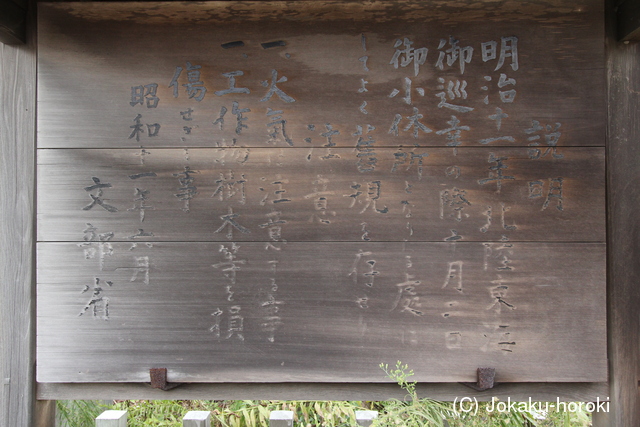 説明
明治十一年北陸東海
御巡幸の際十月二日
御小休所となりし處に
してよく舊規を存せり
注意
一火気に注意する事
一工作物樹木等を損
傷せざる事
昭和十一年六月
文部省
(C) Jokaku-horoki